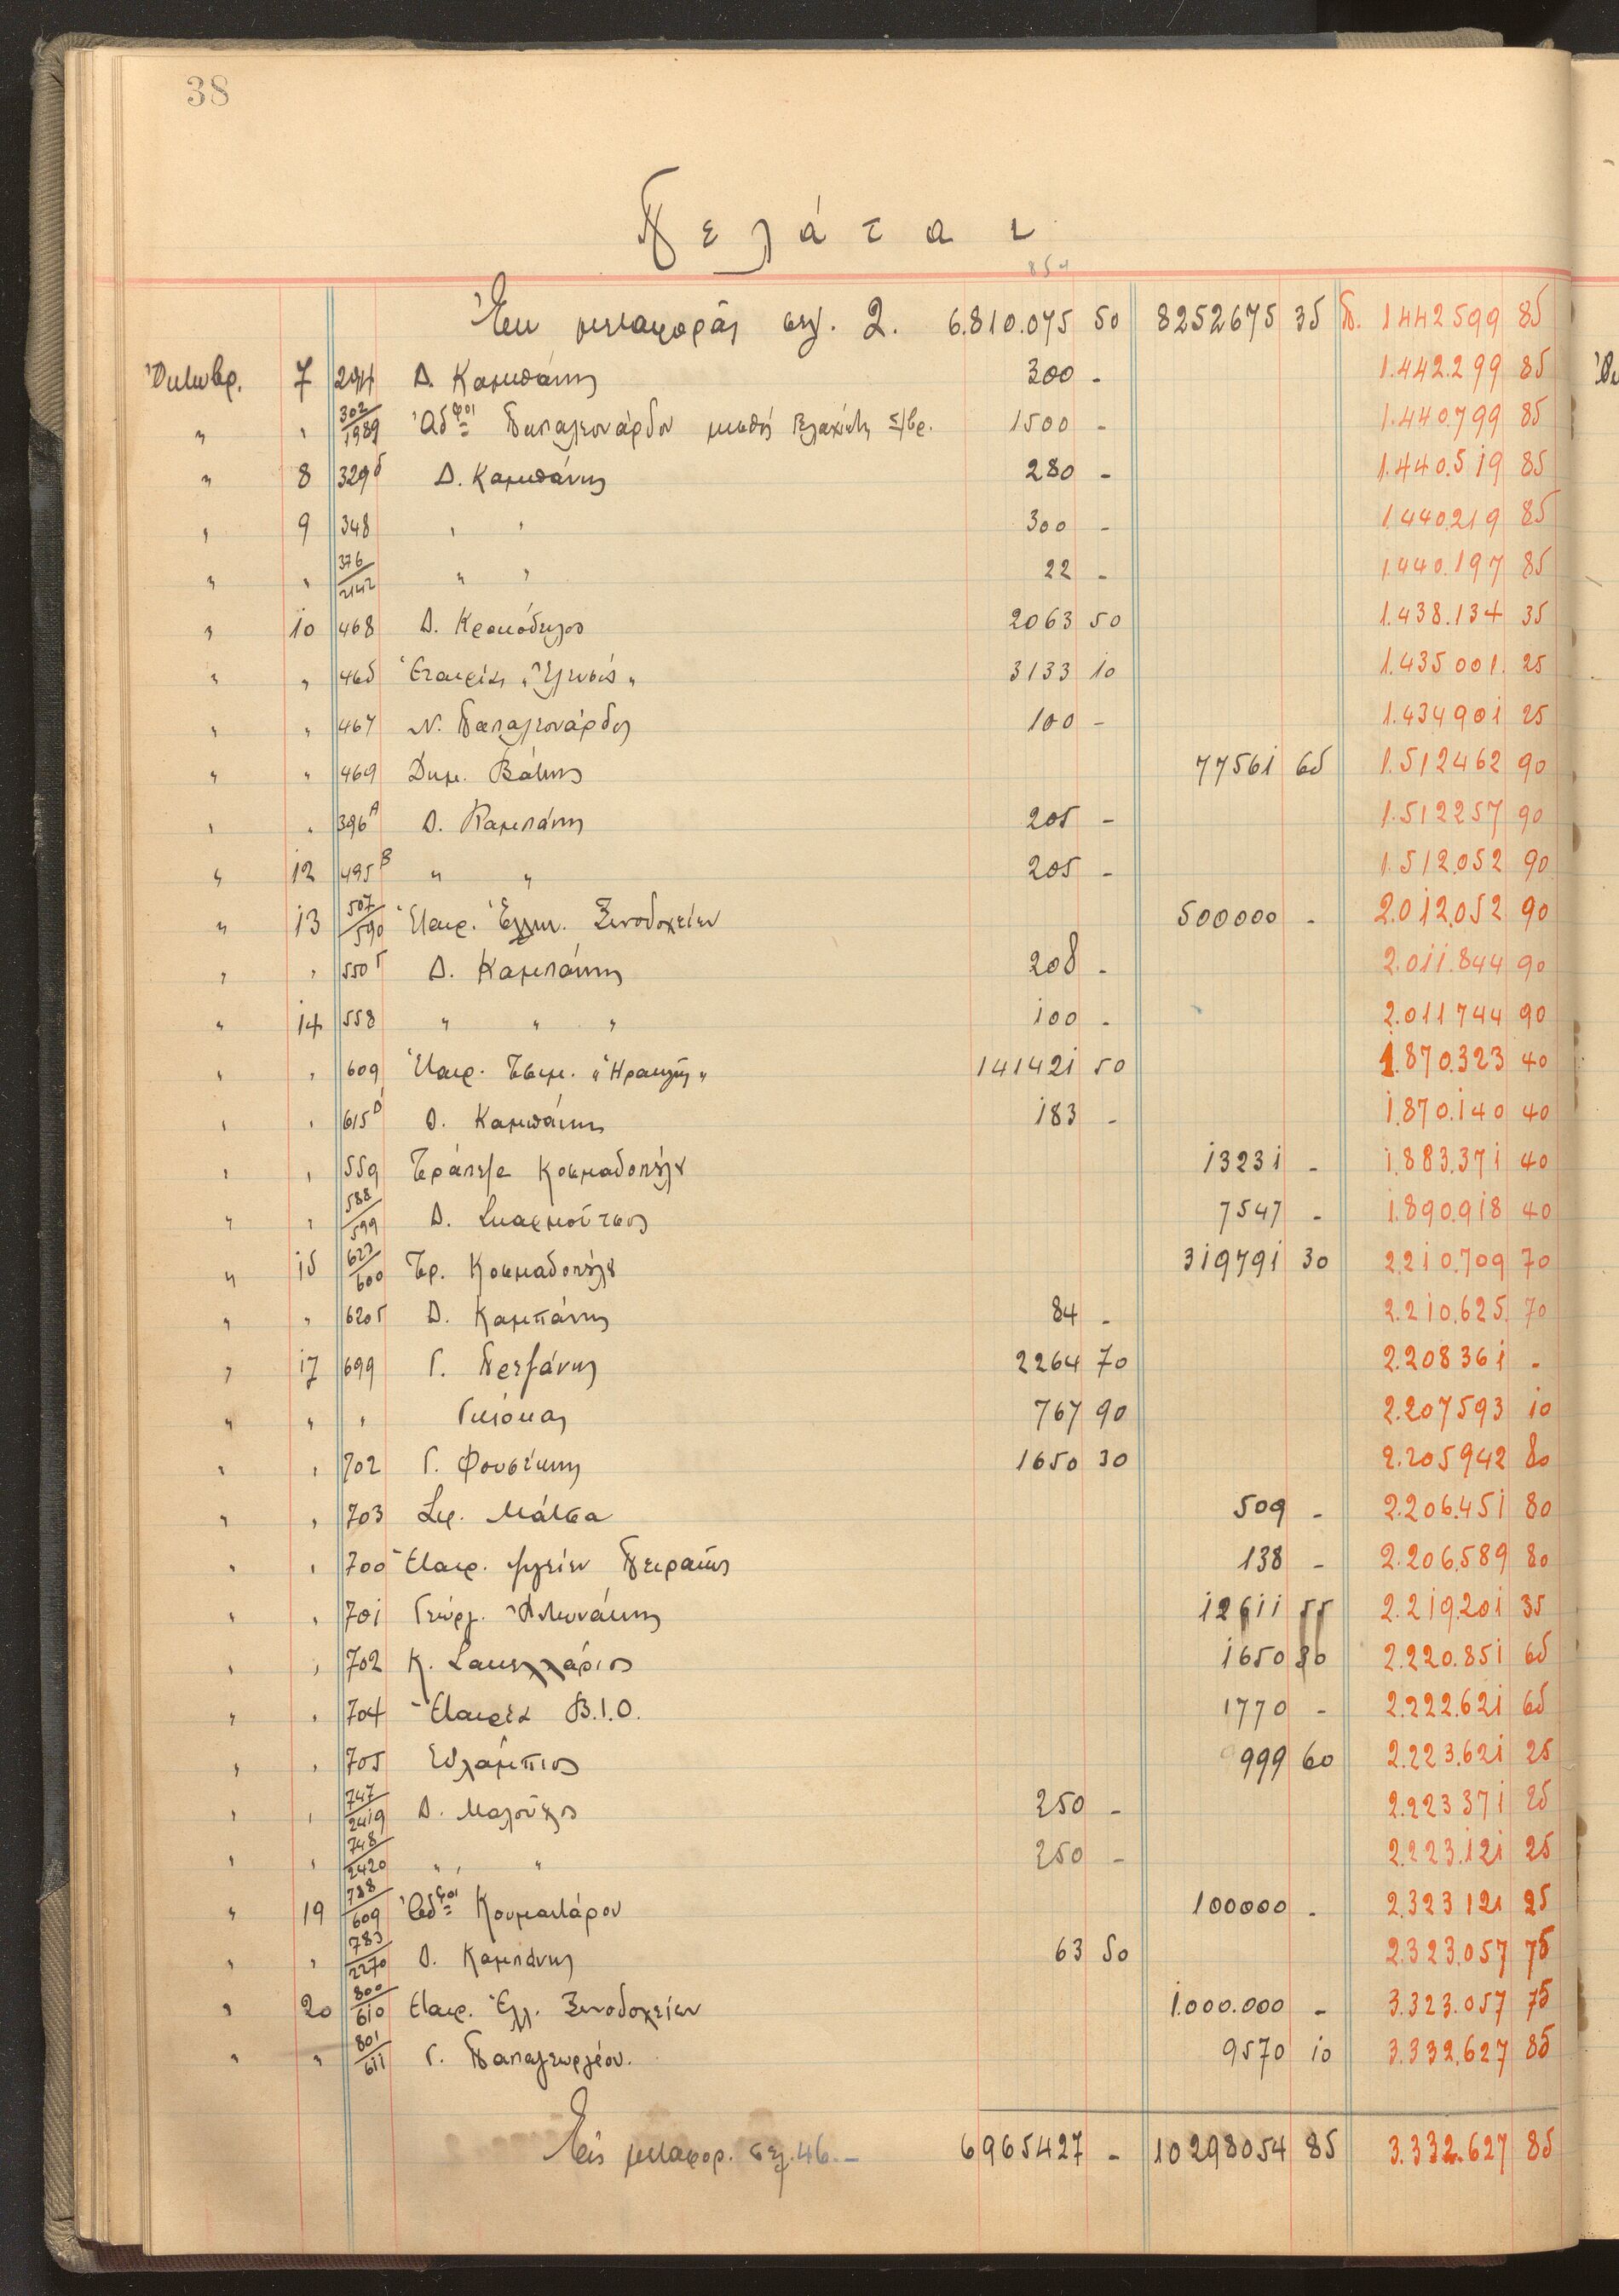 38
Πελάται
Ἐκ μεταφορᾶς σελ. 2. 6.810.075 50 8252675 35 Π. 1442599 85
Ὀκτωβρ. 7 294 Δ. Καμπάνης 300 - 1.442.299 85
" " 302/1989 Ἀδφοὶ Παπαλεονάρδου μισθός Σ/βρ. 1500 - 1.440.799 85
" 8 329δ Δ. Καμπάνης 280 - 1.440.519 85
" 9 348 " " 300 - 1.440.219 85
" " 376/2142 " " 22 - 1.440.197 85
" 10 468 Δ. Κροκόδειλος 2063 50 1.438.134 35
" " 465 Ἑταιρία "Ἐλευσίς" 3133 10 1.435.001. 25
" " 467 Ν. Παπαλεονάρδος 100 - 1.434901 25
" " 469 Δημ. Βάτης 77561 65 1.512462 90
" " 396Α Δ. Καμπάνης 205 - 1.512257 90
" 12 495Β " " 205 - 1.512.052 90
" 13 507/590 Ἑταιρ. Ἑλλην. Ξενοδοχείων 500000 - 2.012.052 90
" " 550Γ Δ. Καμπάνης 208 - 2.011.844 90
" 14 558 " " " 100 - 2.011744 90
" " 609 Ἑταιρ. Τσιμ. "Ἡρακλῆς" 141421 50 1.870.323 40
" " 615Δ Δ. Καμπάνης 183 - 1.870.140 40
" " 559 Τράπεζα Κοσμαδοπούλου 13231 - 1.883.371 40
" " 588/599 Δ. Σκαρμούτσος 7547 - 1.890.918 40
" 15 623/600 Τρ. Κοσμαδοπούλου 319791 30 2.210.709 70
" " 620Γ Δ. Καμπάνης 84 - 2.210.625. 70
" 17 699 Γ. Πρεζάνης 2264 70 2.208361 -
" " " Γκιόκας 767 90 2.207593 10
" " 702 Γ. Φουσέκης 1650 30 2.205942 80
" " 703 Σιρ. Μάτσα 509 - 2.206.451 80
" " 700 Ἑταιρ. ψυγείων Πειραιῶς 138 - 2.206.589 80
" " 701 Γεώργ. Ἀντωνάκης 12611 55 2.219.201 35
" " 702 Κ. Σακελλάριος 1650 30 2.220.851 65
" " 704 Ἑταιρία Β.Ι.Ο. 1770 - 2.222.621 65
" " 705 Εὐλάμπιος 999 60 2.223.621 25
" " 747/2419 Δ. Μαλοῦχος 250 - 2.223371 25
" " 748/2420 " " " 250 - 2.223.121 25
" 19 788/609 Ἀδφοὶ Κουμαντάρου 100000 - 2.323121 25
" " 783/2270 Δ. Καμπάνης 63 50 2.323.057 75
" 20 800/610 Ἑταιρ. Ἑλλ. Ξενοδοχείων 1.000.000 - 3.323.057 75
" " 801/611 Γ. Παπαγεωργίου. 9570 10 3.332.627 85
Εἰς μεταφορ. σελ. 46.- 6965427 - 10298054 85 3.332.627 85